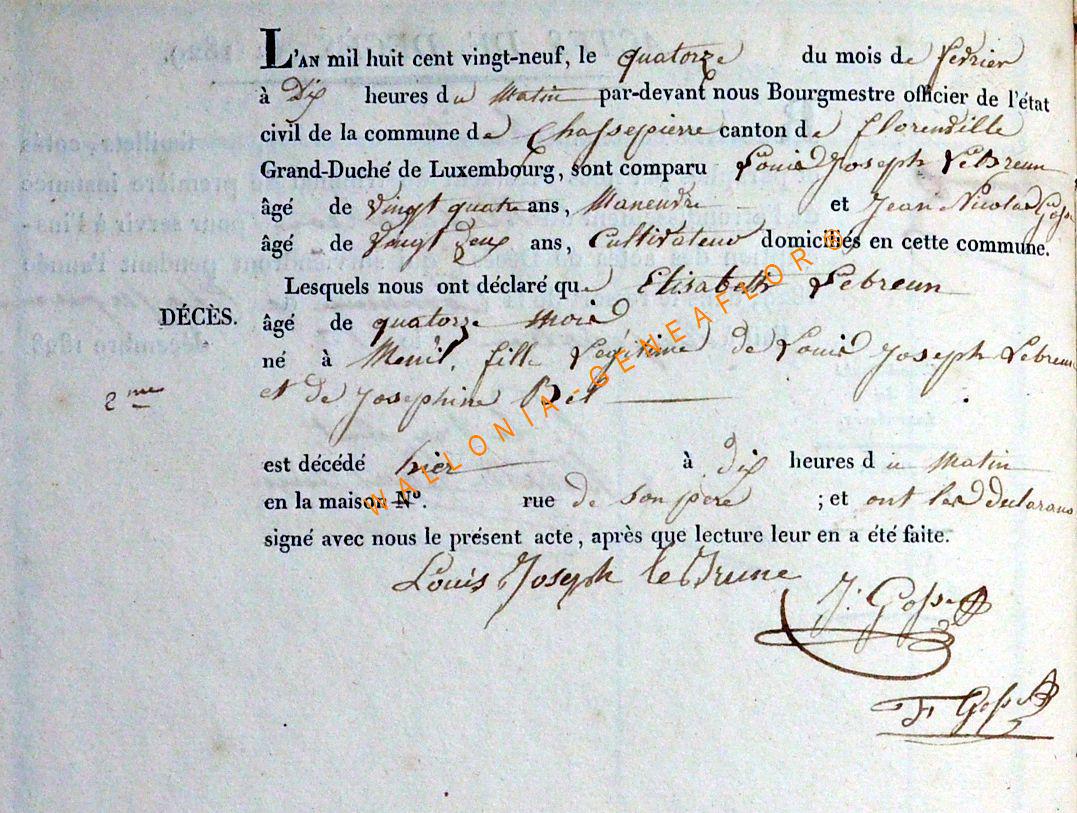 L'AN mil huit cent vingt-neuf, le quatorze du mois de fevrier
à Dix heures du Matin par-devant nous Bourgmestre officier de l'état
civil de la commune de Chassepierre canton de florenville
Grand-Duché de Luxembourg, sont comparu Louis Joseph LeBreun
âgé de vingt quatre ans, Maneuvre et Jean Nicolas
âgé de vingt deux ans, Cultivateur domiciliés en cette commune.
Lesquels nous ont déclaré que Elisabeth Lebreun
DÉCÈS. âgé de quatorze mois
né à Menil, fille Légitime de Louis Joseph Lebreun
2me et de Josephine
est décédé hier à dix heures du Matin
en la maison N°. rue de son pere ; et ont les declarans
signé avec nous le présent acte, après que lecture leur en a été faite.
Louis Joseph leBrune
J. Gosse
F Gosse
WALLONIA-GENEAFLOR®